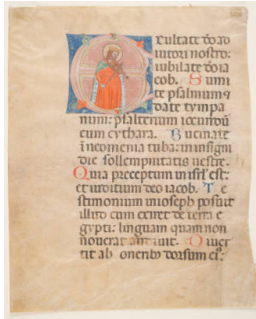 xultate deo ad
iutori nostro:
iubilate deo ia
cob. Sumi
te psalmum et
date tympa
num: psalterium iocundū
cum cythara. Bucinate
in neomenia tuba: in insigni
die sollempnitatis uestre.
Quia preceptum in isrl est:
et iudicium deo iacob. Te
stimonium in ioseph posuit
illud cum exiret de terra e
gypti: linguam quam non
nouerat audiuit. Diuer
tit ab oneribus dorsum eiꝰ: